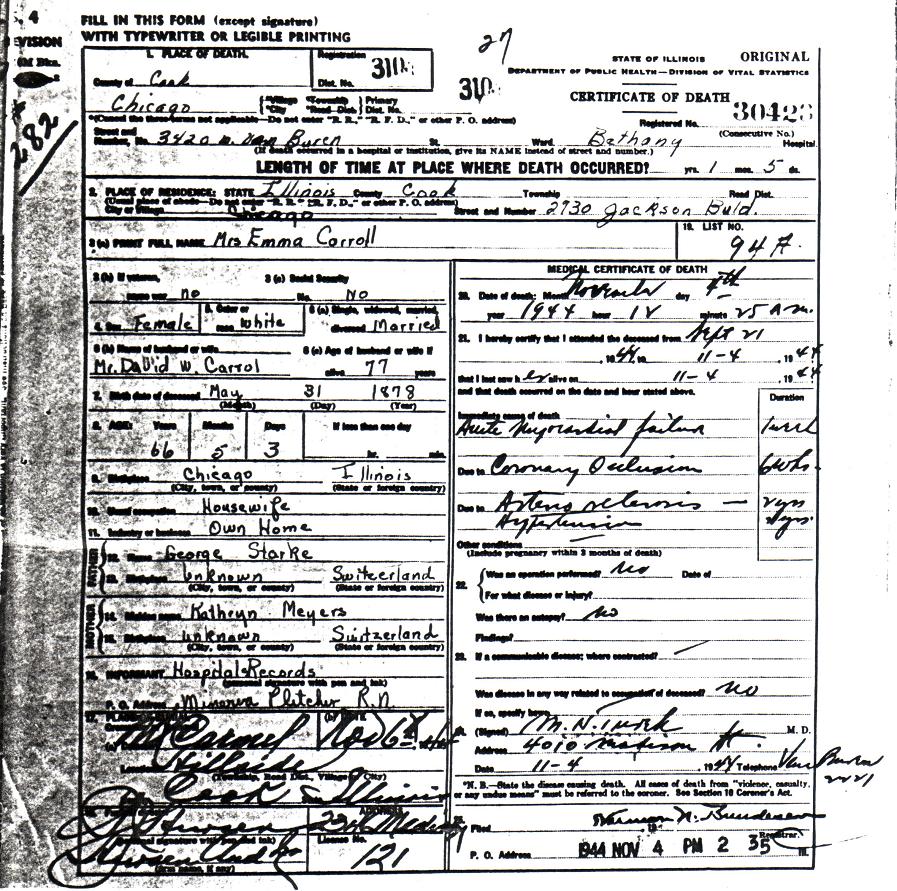 4
FILL IN THIS FORM (except signature)
WITH TYPEWRITER OR LEGIBLE PRINTING
27
STATE OF ILLINOIS ORIGINAL
DEPARTMENT OF PUBLIC HEALTH—DIVISION OF VITAL STATISTICS
CERTIFICATE OF DEATH
Registered No. 30423
(Consecutive No.)
282
1. PLACE OF DEATH.
County of Cook
Registration
Dist. No. 310
310
Chicago
Village Township Primary
City Road Dist. Dist. No.
*(Cancel the three terms not applicable—Do not enter "R. R.", "R. F. D.", or other P. O. address)
Street and
Number, No. 3420 W. Van Buren St. Ward, Bethany Hospital
(If death occurred in a hospital or institution, give its NAME instead of street and number.)
LENGTH OF TIME AT PLACE WHERE DEATH OCCURRED? yrs. 1 mos. 5 ds.
2. PLACE OF RESIDENCE: STATE Illinois County Cook Township Road Dist.
(Usual place of abode—Do not enter "R. R.", "R. F. D.", or other P. O. address)
City or Village Chicago Street and Number 2730 Jackson Buld.
3 (a) PRINT FULL NAME Mrs Emma Carroll
19. LIST NO.
94 A.
3 (b) If veteran,
name war no
3 (c) Social Security
No. No
4. Sex Female
5. Color or
race White
6 (a) Single, widowed, married,
divorced Married
6 (b) Name of husband or wife
Mr. David W. Carrol
6 (c) Age of husband or wife if
alive 77 years
7. Birth date of deceased May 31 1878
(Month) (Day) (Year)
8. AGE: Years Months Days If less than one day
66 5 3 hr. min.
9. Birthplace Chicago Illinois
(City, town, or county) (State or foreign country)
10. Usual occupation Housewife
11. Industry or business Own Home
FATHER
12. Name George Starke
13. Birthplace unknown Switzerland
(City, town, or county) (State or foreign country)
MOTHER
14. Maiden name Kathryn Meyers
15. Birthplace unknown Switzerland
(City, town, or county) (State or foreign country)
16. INFORMANT Hospital Records
(personal signature with pen and ink)
P. O. Address Minerva Pletcher R.N.
17.
Mt Carmel
(b) DATE
Nov 6th 1944
Hillside
(Township, Road Dist., Village or City)
Cook Illinois
ADDRESS
License No.
121
(firm name, if any)
MEDICAL CERTIFICATE OF DEATH
20. Date of death: Month November day 4th
year 1944 hour 12 minute 25 a.m.
21. I hereby certify that I attended the deceased from Sept 21
1944 to 11-4, 1944
that I last saw her alive on 11-4, 1944
and that death occurred on the date and hour stated above.
Duration
Immediate cause of death
Acute Myocardial failure 1 week
Due to Coronary Occlusion 6 wks.
Due to Arterio sclerosis — yrs
Hypertension yrs.
Other conditions
(Include pregnancy within 3 months of death)
22. Was an operation performed? No Date of
For what disease or injury?
Was there an autopsy? No
Findings?
23. If a communicable disease; where contracted?
Was disease in any way related to occupation of deceased? no
If so, specify how:
(Signed) M. D.
Address 4010 Madison St.
Date 11-4, 1944 Telephone Van Buren
2221
*N. B.—State the disease causing death. All cases of death from "violence, casualty,
or any undue means" must be referred to the coroner. See Section 10 Coroner's Act.
Filed Herman N. Bundesen
Registrar.
P. O. Address 1944 NOV 4 PM 2 35 Ill.